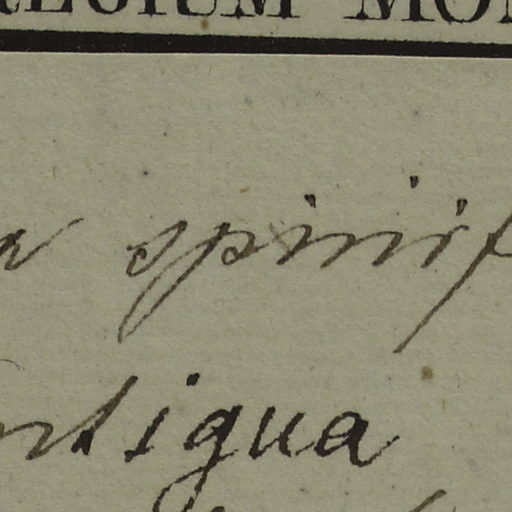 REGIUM MON
a spinif
ntigua